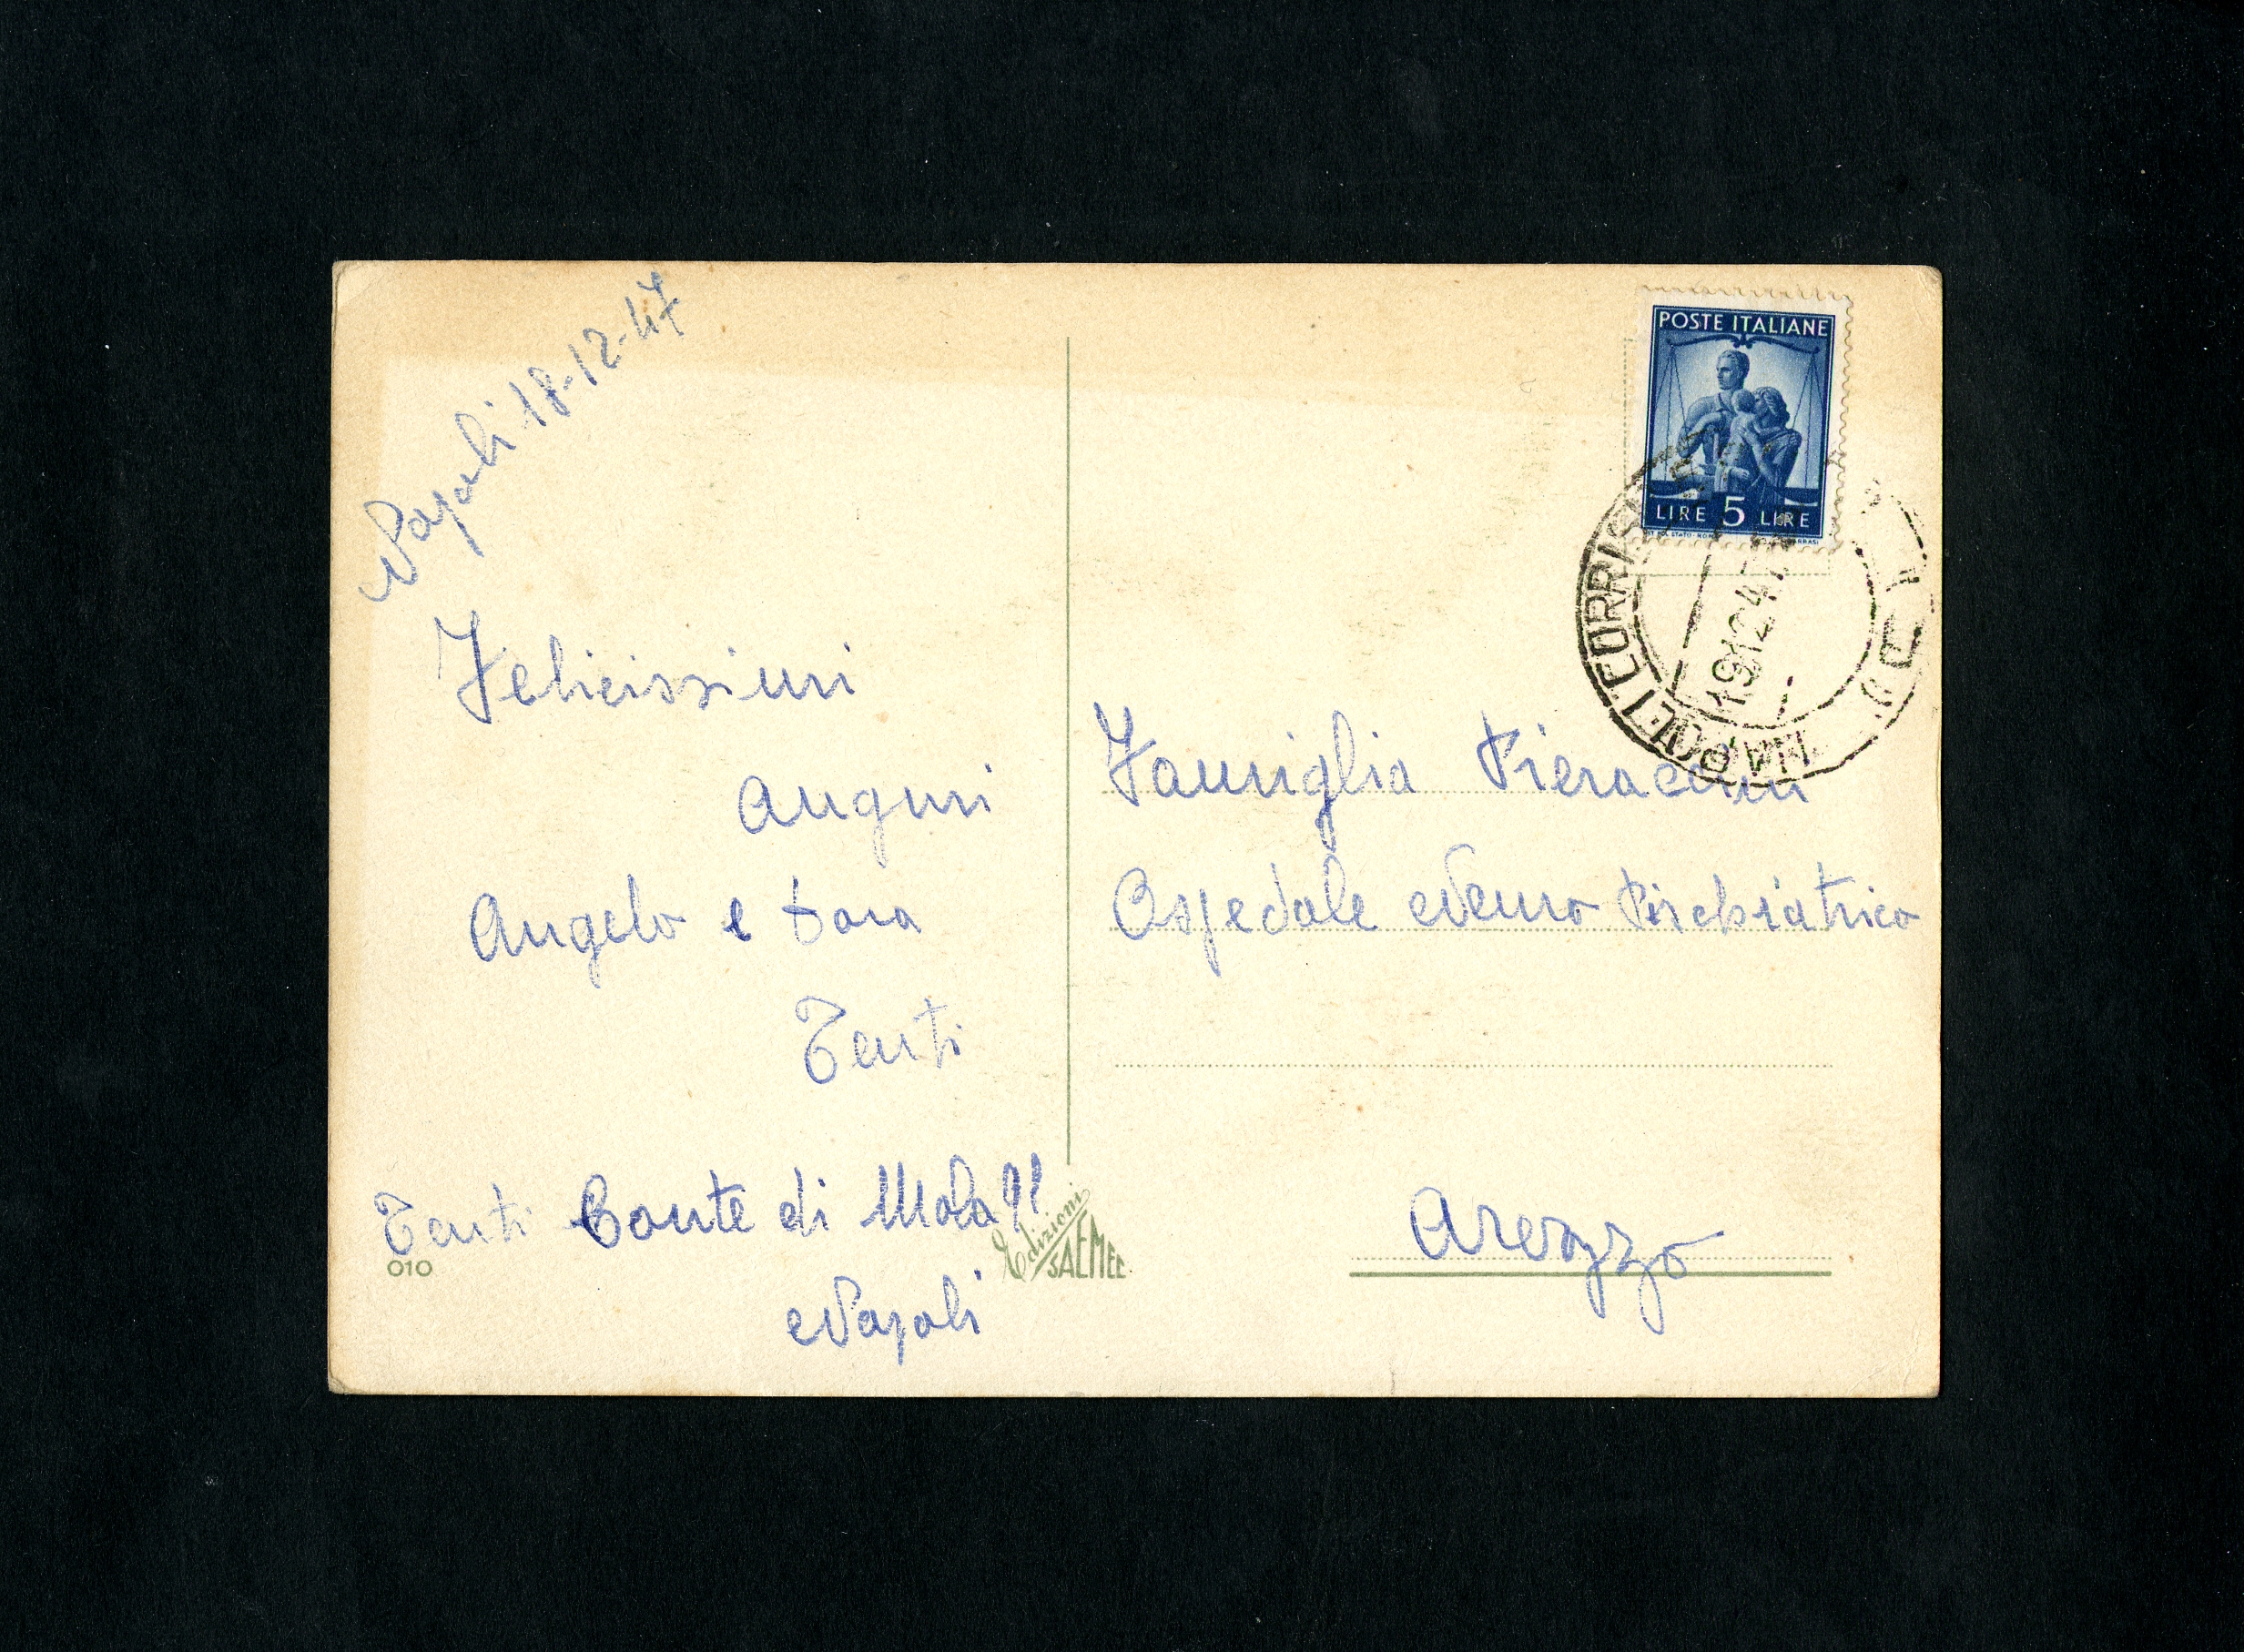 Napoli 18-12-47
Felicissimi
Auguri
Angelo e
Tenti
Tenti Conte di Mola 91
Napoli
010
Edizioni
SAEMEC
POSTE ITALIANE
LIRE 5 LIRE
NAPOLI CORRISP
19 12 47
Famiglia Pieraccini
Ospedale Neuro Psichiatrico
Arezzo